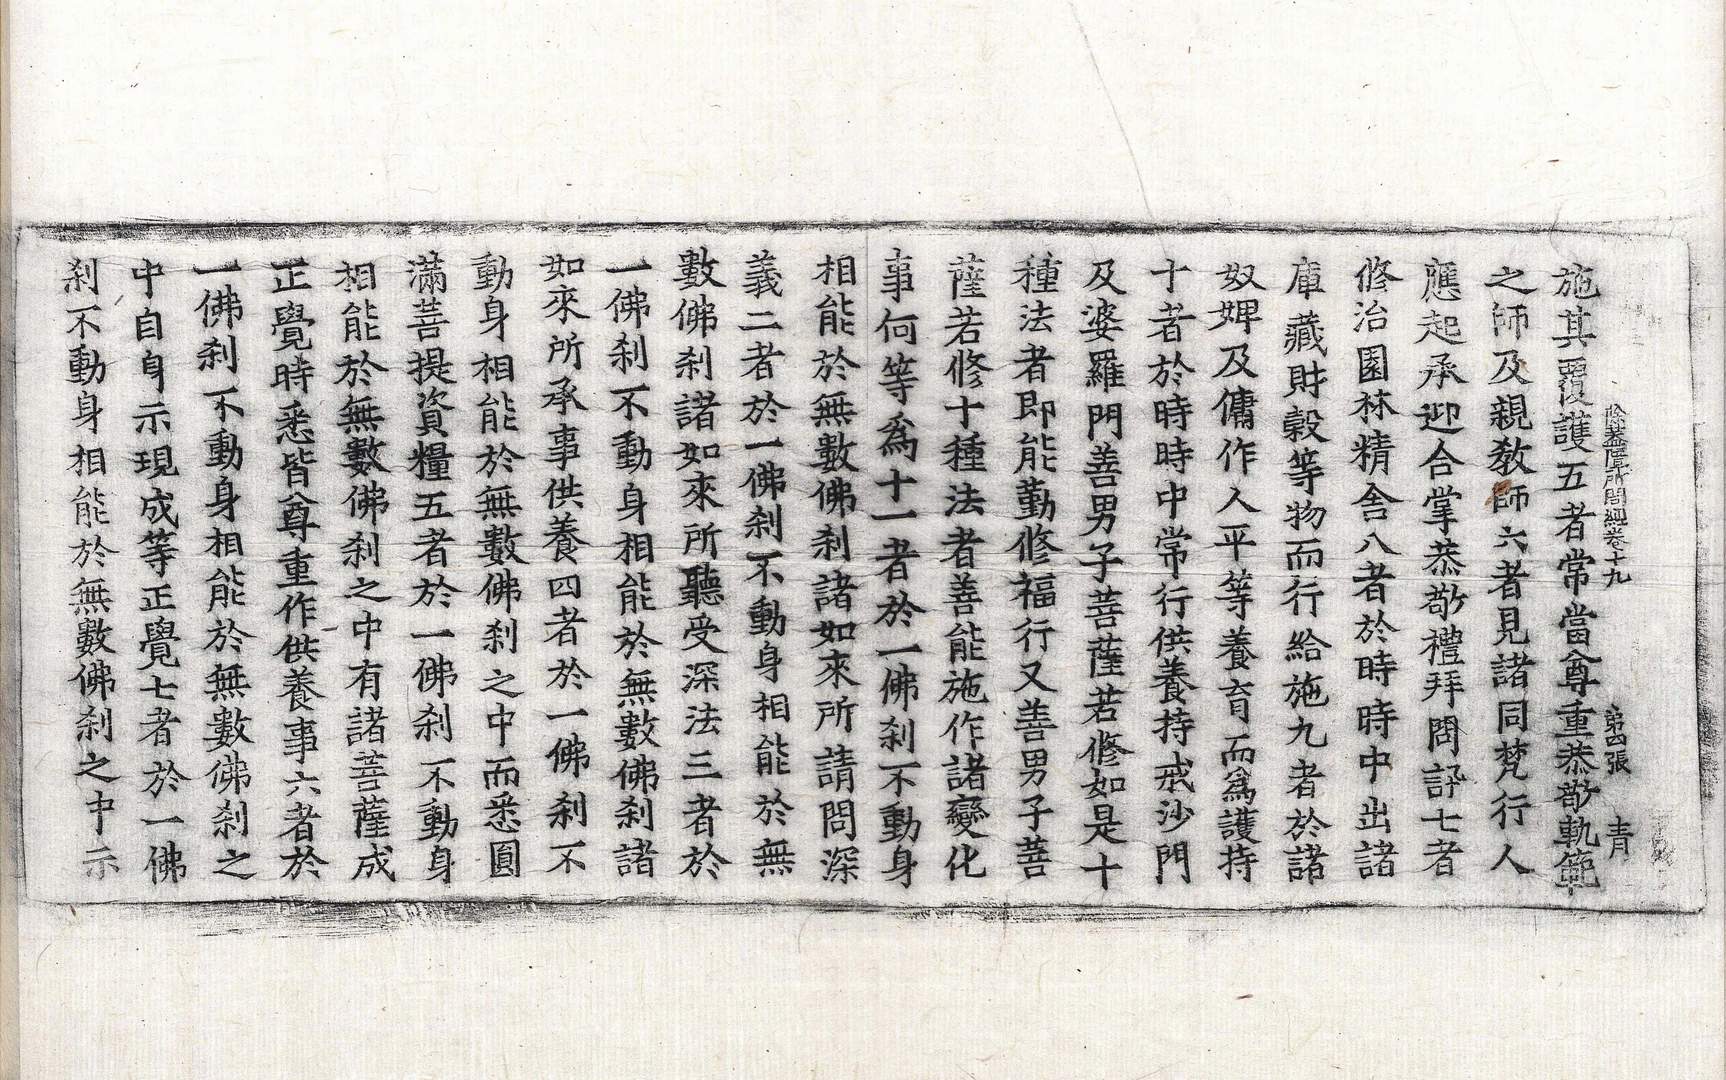 除蓋障所問經卷十九　第四張　青
施其覆護五者常當尊重恭敬軌範
之師及親教師六者見諸同梵行人
應起承迎合掌恭敬禮拜問訊七者
修治園林精舍八者於時時中出諸
庫藏財穀等物而行給施九者於諸
奴婢及傭作人平等養育而爲護持
十者於時時中常行供養持戒沙門
及婆羅門善男子菩薩若修如是十
種法者即能勤修福行又善男子菩
薩若修十種法者善能施作諸變化
事何等爲十一者於一佛刹不動身
相能於無數佛刹諸如來所請問深
義二者於一佛刹不動身相能於無
數佛刹諸如來所聽受深法三者於
一佛刹不動身相能於無數佛刹諸
如來所承事供養四者於一佛刹不
動身相能於無數佛刹之中而悉圓
滿菩提資糧五者於一佛刹不動身
相能於無數佛刹之中有諸菩薩成
正覺時悉皆尊重作供養事六者於
一佛刹不動身相能於無數佛刹之
中自身示現成等正覺七者於一佛
刹不動身相能於無數佛刹之中示